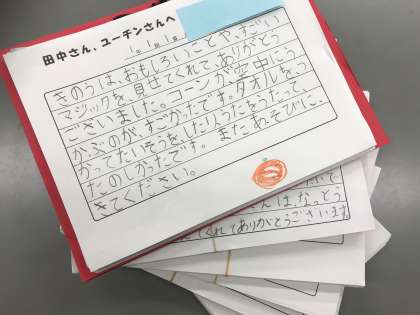 田中さん、ユーチンさんへ
1の1の1
きのうは、おもしろいことや、すごい
マジックを見せてくれて、ありがとう
ございました。コーンが空中にう
かぶのが、すごかったです。タオルをつ
かってたいそうをしたりうたをうたって、
たのしかったです。またあそびに、
きてください。
は、なっとう
くれてありがとうございます